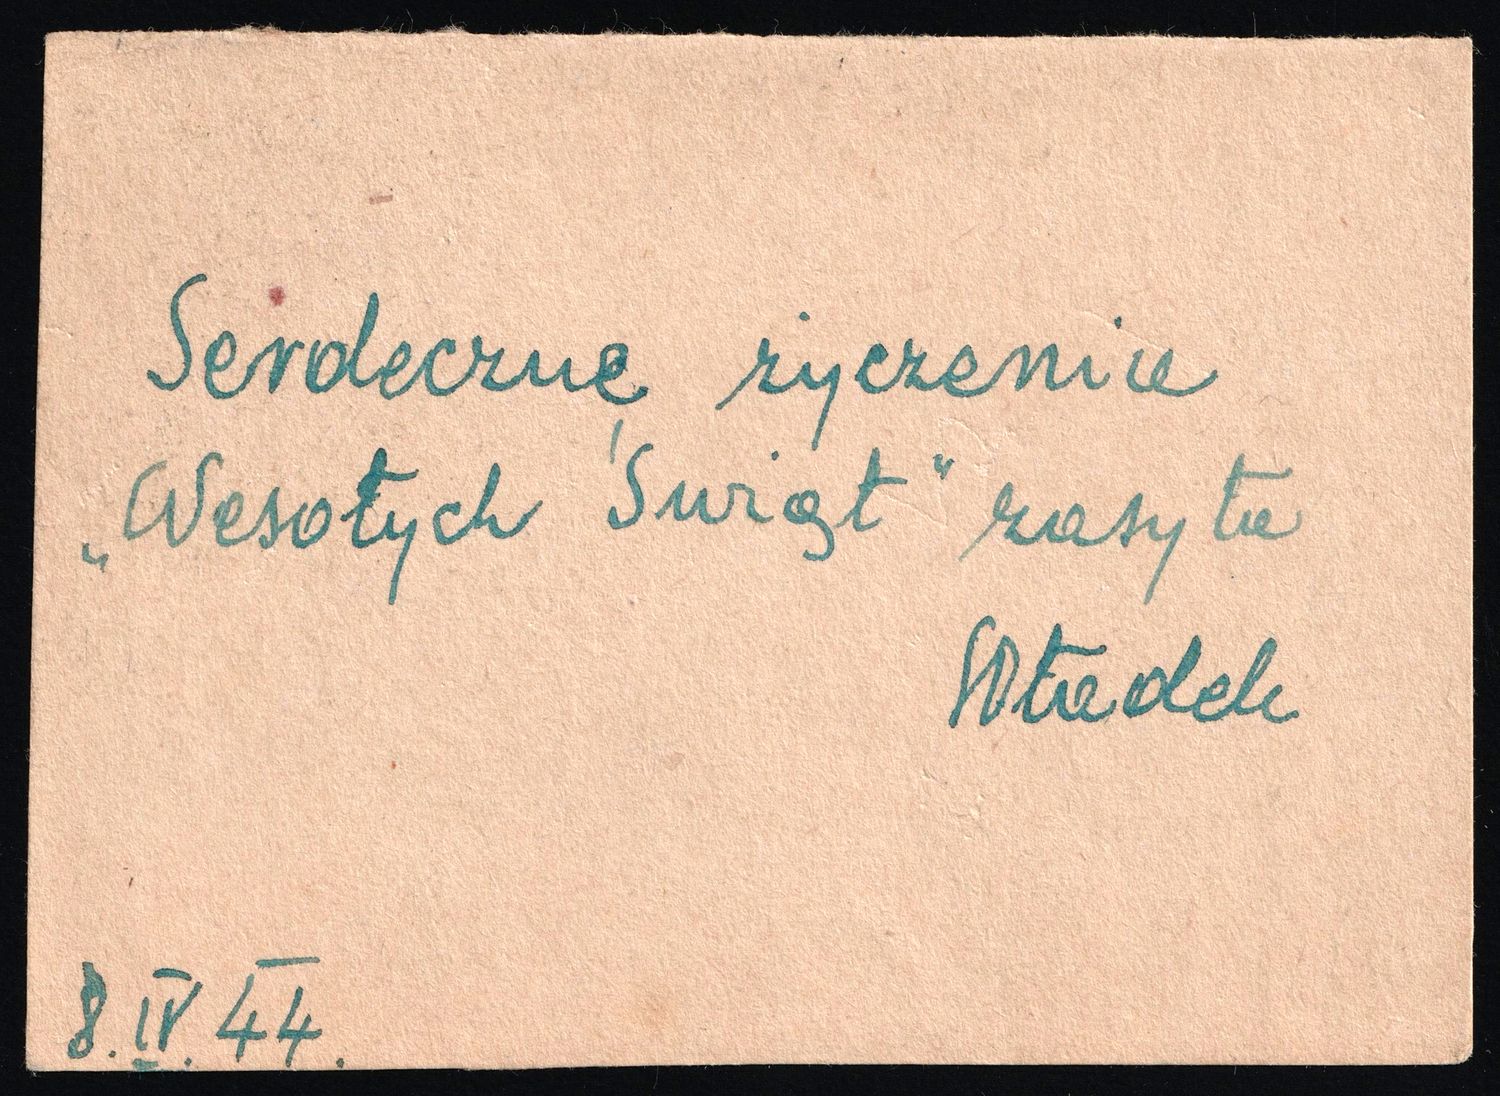 Serdeczne życzenia
„Wesołych Świąt” zasyła
Władek
8.IV.44.